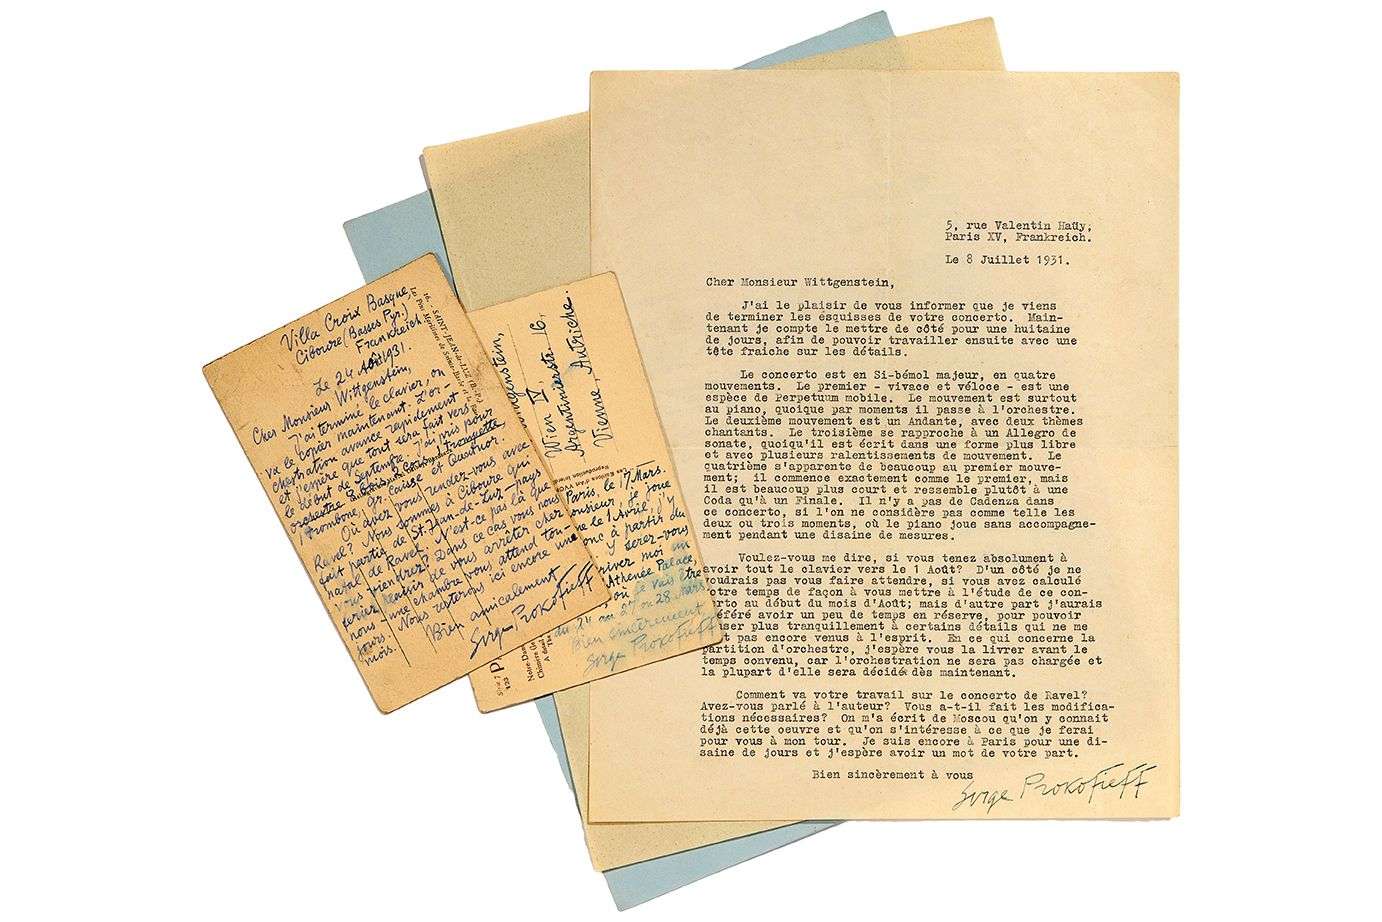 Villa Croix Basque,
Ciboure (Basses Pyr.)
Frankreich
Le 24 Aôu 1931.
Cher Monsieur Wittgenstein,
J'ai terminé le clavier, on
va le copier maintenant. L'or-
chestration avance rapidement
et j'espère que tout sera fait vers
le début de Septembre. J'ai pris pour
orchestre bois, 2 cors, 1 trompette
1 trombone, gr. caisse et Quatuor.
Où avez vous rendez-vous avec
Ravel? Nous sommes à Ciboure qui
fait partie de St Jean-de-Luz - pays
natal de Ravel. N'est-ce pas là que
vous viendrez? Dans ce cas vous nous
feriez de vous arrêter chez
nous - une chambre vous attend tou-
jours. Nous resterons ici encore une
mois.
Bien amicalement
Serge Prokofieff
16. - SAINT-JEAN-de-LUZ
Wien IV,
Argentinierstr. 16,
Vienne, Autriche.
Paris, le 17 Mars.
onsieur, je joue
ne le 1 Avril, j'y
onc à partir du
y serez-vous
rivez moi un
Athénée Palace,
où je vais être
du 24 au 27 ou 28 Mars
Bien sincèrement
Serge Prokofieff
5, rue Valentin Haüy,
Paris XV, Frankreich.
Le 8 Juillet 1931.
Cher Monsieur Wittgenstein,
J'ai le plaisir de vous informer que je viens
de terminer les esquisses de votre concerto. Main-
tenant je compte le mettre de côté pour une huitaine
de jours, afin de pouvoir travailler ensuite avec une
tête fraiche sur les détails.
Le concerto est en Si-bémol majeur, en quatre
mouvements. Le premier - vivace et véloce - est une
espèce de Perpetuum mobile. Le mouvement est surtout
au piano, quoique par moments il passe à l'orchestre.
Le deuxième mouvement est un Andante, avec deux thèmes
chantants. Le troisième se rapproche à un Allegro de
sonate, quoiqu'il est écrit dans une forme plus libre
et avec plusieurs ralentissements de mouvement. Le
quatrième s'apparente de beaucoup au premier mouve-
ment; il commence exactement comme le premier, mais
il est beaucoup plus court et ressemble plutôt à une
Coda qu'à un Finale. Il n'y a pas de Cadenza dans
ce concerto, si l'on ne considère pas comme telle les
deux ou trois moments, où le piano joue sans accompagne-
ment pendant une disaine de mesures.
Voulez-vous me dire, si vous tenez absolument à
avoir tout le clavier vers le 1 Août? D'un côté je ne
oudrais pas vous faire attendre, si vous avez calculé
otre temps de façon à vous mettre à l'étude de ce con-
erto au début du mois d'Août; mais d'autre part j'aurais
éféré avoir un peu de temps en réserve, pour pouvoir
user plus tranquillement à certains détails qui ne me
t pas encore venus à l'esprit. En ce qui concerne la
partition d'orchestre, j'espère vous la livrer avant le
temps convenu, car l'orchestration ne sera pas chargée et
la plupart d'elle sera décidée dès maintenant.
Comment va votre travail sur le concerto de Ravel?
Avez-vous parlé à l'auteur? Vous a-t-il fait les modifica-
tions nécessaires? On m'a écrit de Moscou qu'on y connait
déjà cette oeuvre et qu'on s'intéresse à ce que je ferai
pour vous à mon tour. Je suis encore à Paris pour une di-
saine de jours et j'espère avoir un mot de votre part.
Bien sincèrement à vous
Serge Prokofieff